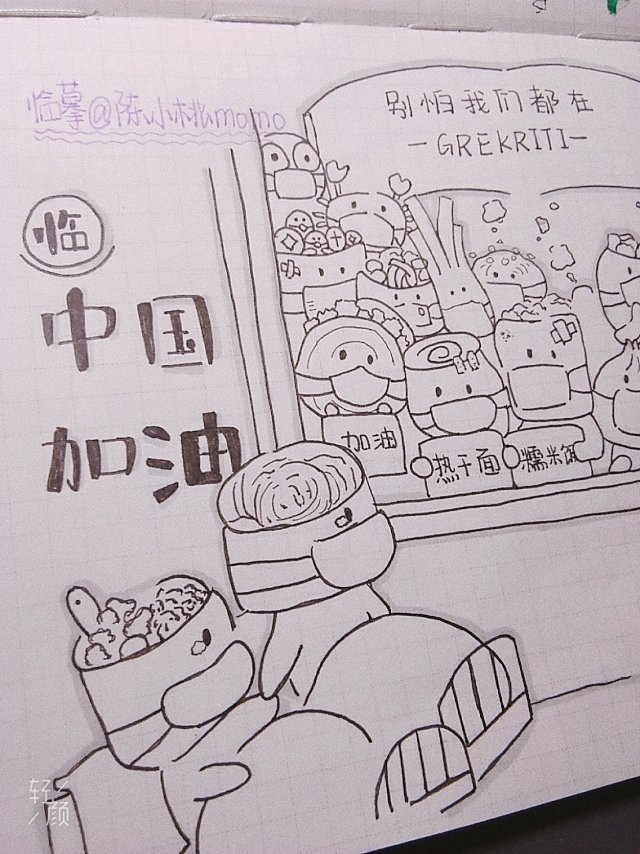 临摹@陈小桃momo
别怕我们都在
—GREKRITI—
临
中国
加油
加油
热干面
糯米饭
轻颜